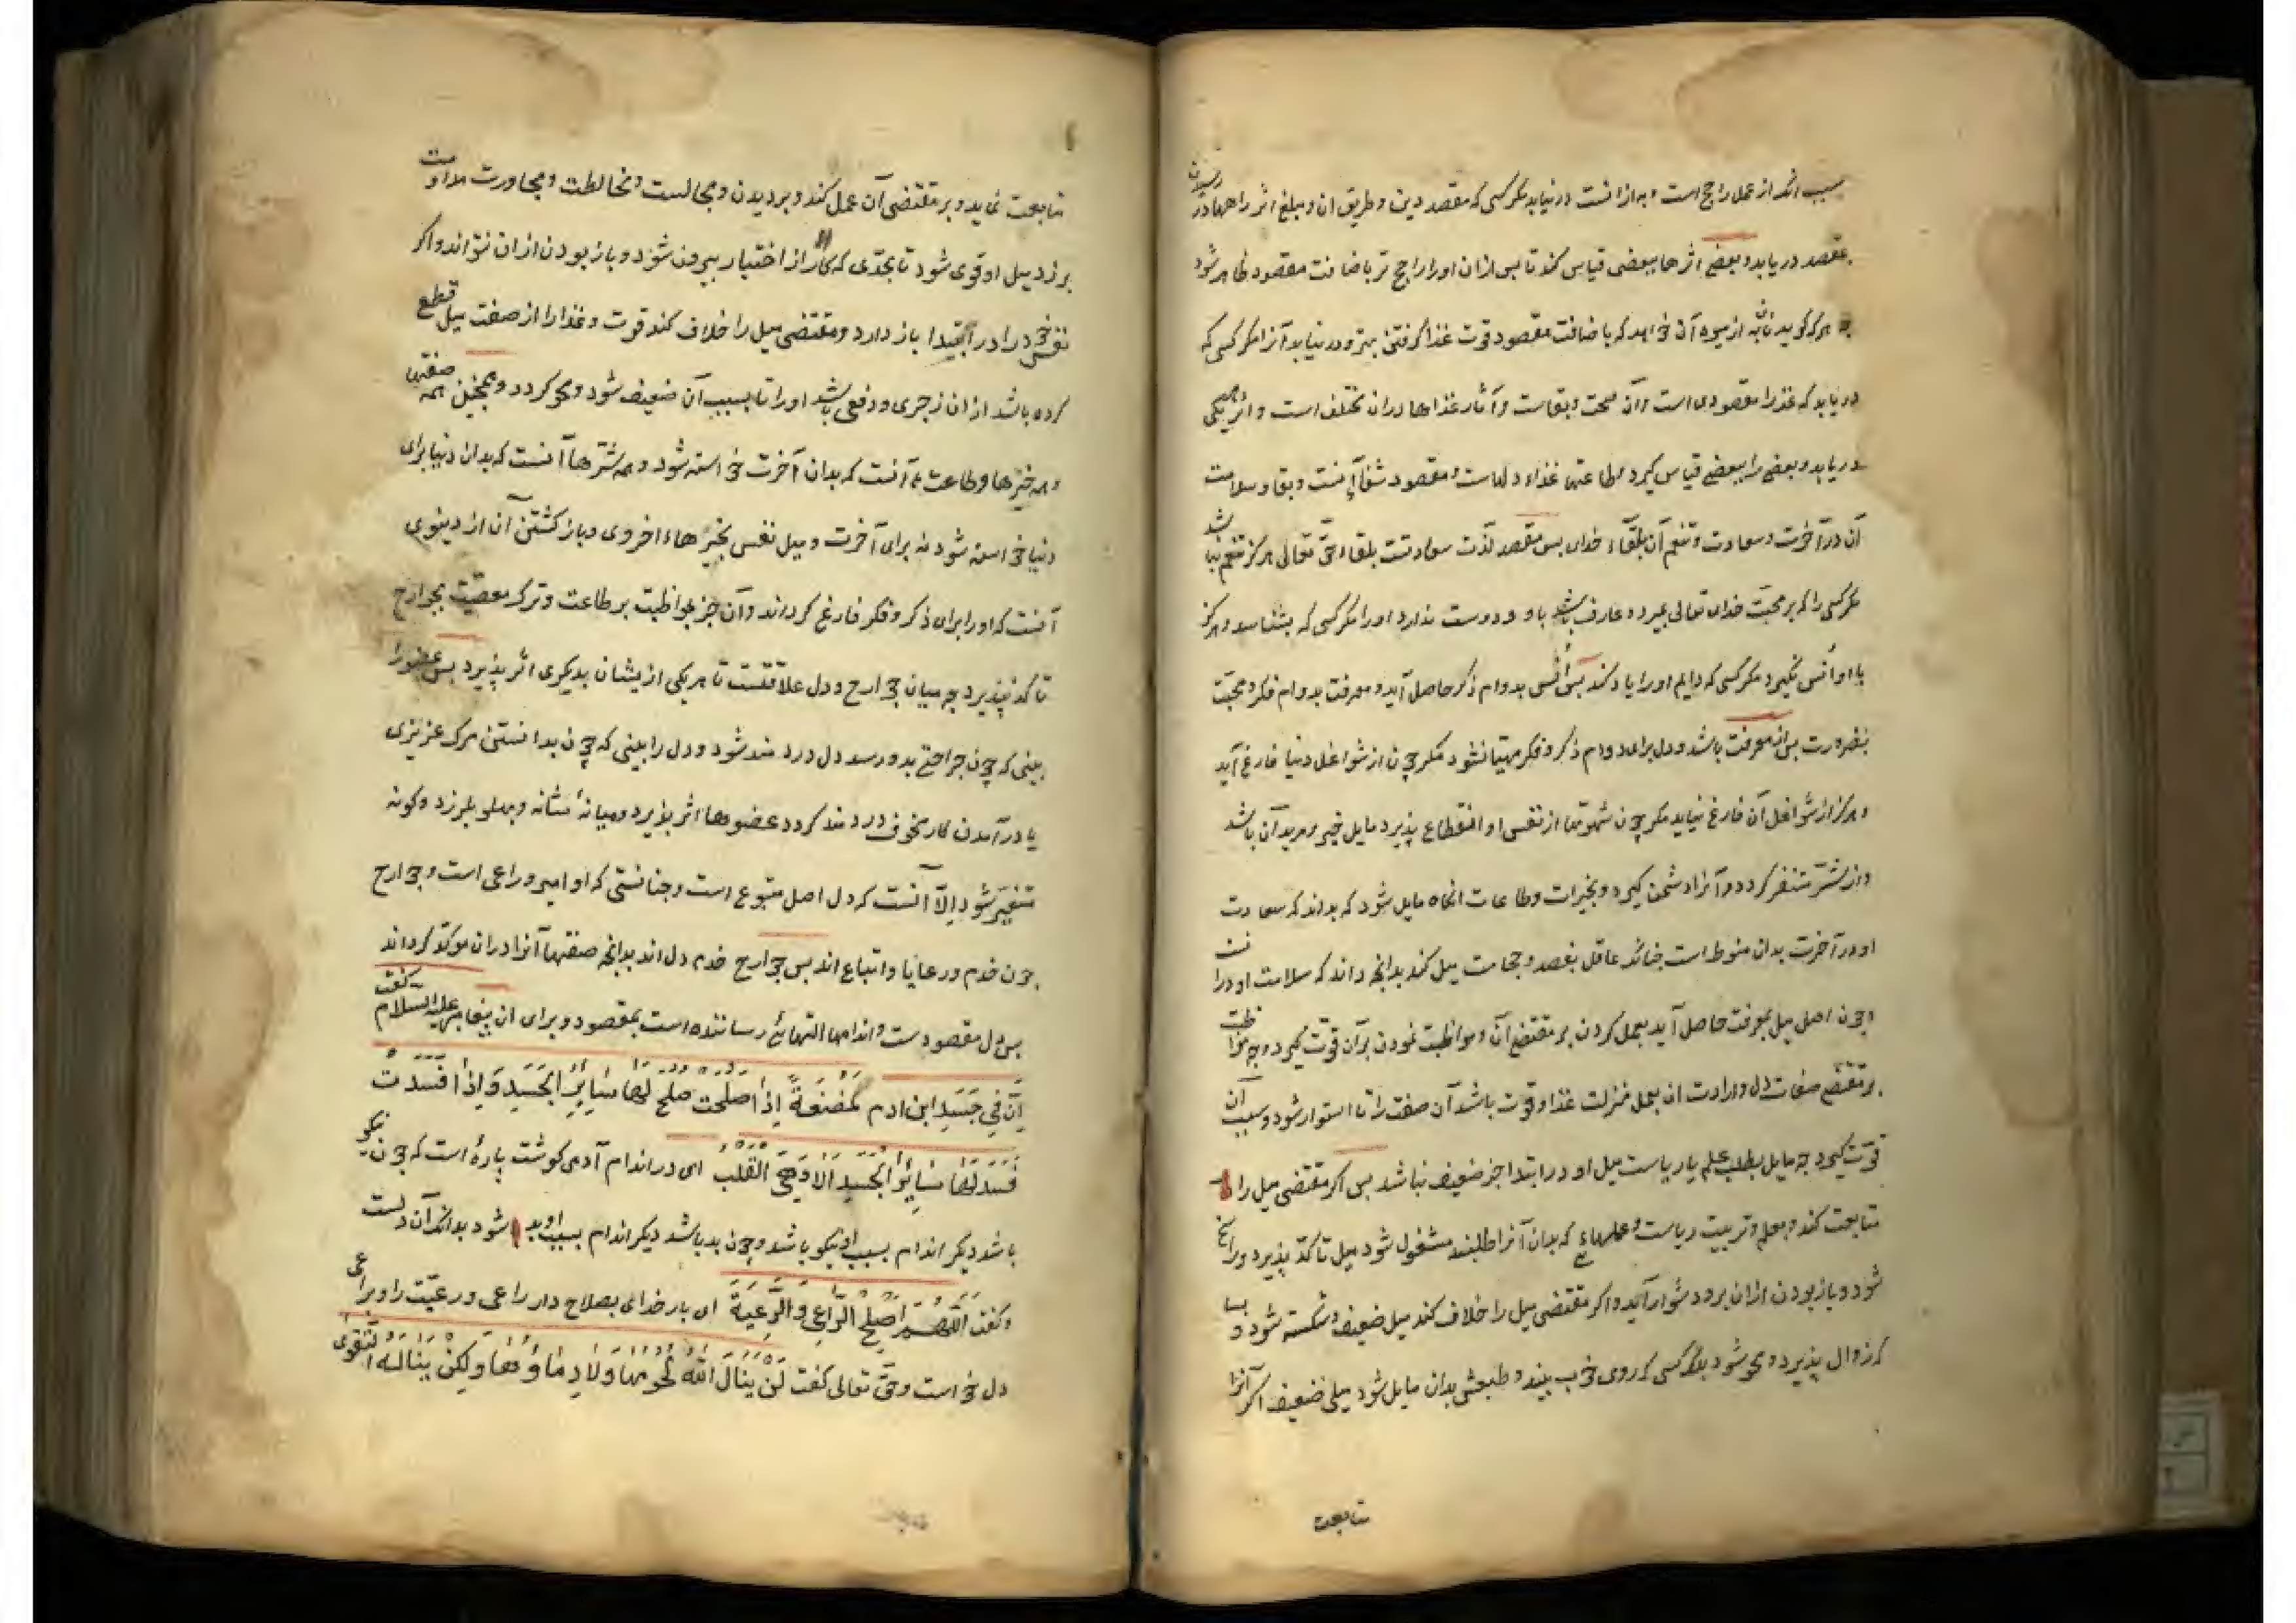 سبب انکه از عمل راجح است و به ازانست در نیابد مکر کسی که مقصد دین و طریق ان و مبلغ اثر راهها در رسیدن
بمقصد دریابد و بعضی اثرها ببعضی قیاس کند تا پس ازان او را راجح تر باضافت مقصود ظاهر شود
چه هرکه کوید نان به از میوه آن خواهد که باضافت مقصود قوت غذا کرفتن بهتر و در نیابد آنرا مکر کسی که
دریابد که غذا را مقصودی است وآن صحت و بقاست و آثار غذاها دران مختلف است و اثر هر یکی
دریابد و بعضی را ببعضی قیاس کیرد و طاعتها غذاء دلهاست و مقصود شفاء آنست و بقا و سلامت
آن در آخرت و سعادت و تنعم آن بلقاء خدای پس مقصد لذت سعادتست بلقاء حق تعالی و هرکز متنعم نباشد
مکر کسی را که بر محبت خدای تعالی بمیرد و عارف باشد باو و دوست ندارد او را مکر کسی که بشناسد و هرکز
با او انس نکیرد مکر کسی که دایم او را یاد کند پس انس بدوام ذکر حاصل آید و معرفت بدوام فکر و محبت
بضرورت پس از معرفت باشد و دل برای دوام ذکر و فکر مهیا نشود مکر چون از شواغل دنیا فارغ آید
و هرکز از شواغل آن فارغ نیاید مکر چون شهوتها از نفس او انقطاع پذیرد مایل خیر و مرید آن باشد
و از شر متنفر کردد و آنرا دشمن کیرد و بخیرات و طاعات انکاه مایل شود که بداند که سعادت
او در آخرت بدان منوط است چنانکه عاقل بفصد و حجامت میل کند بدانچه داند که سلامت او درانست
و چون اصل میل بمعرفت حاصل آید بعمل کردن بر مقتضی آن و مواظبت نمودن برآن قوت کیرد چه مواظبت
بر مقتضی صفات دل و ارادت ان بعمل بمنزلت غذا و قوت باشد آن صفت را تا استوار شود و بسبب آن
قوت کیرد چه مایل بطلب علم یا ریاست میل او در ابتدا جز ضعیف نباشد پس اکر مقتضی میل را
متابعت کند و بعلم و تربیت ریاست و عملهاء که بدان آنرا طلبند مشغول شود میل تاکد پذیرد و راسخ
شود و باز بودن ازان برو دشوار آید و اکر مقتضی میل را خلاف کند میل ضعیف و شکسته شود و بسا
که زوال پذیرد و محو شود بلکه کسی که روی خوب بیند و طبعش بدان مایل شود میلی ضعیف اکر آنرا
متابعت
متابعت نماید و بر مقتضی آن عمل کند و بر دیدن و مجالست و مخالطت و مجاورت مداومت
برزد میل او قوی شود تا بحدی که کار از اختیار بیرون شود و باز بودن ازان نتواند و اکر
نفس خود را در ابتدا باز دارد و مقتضی میل را خلاف کند قوت و غذا را از صفت میل قطع
کرده باشد ازان زجری و دفعی باشد او را تا بسبب آن ضعیف شود و محو کردد و همچنین همه صفتها
و همه خیرها و طاعتها آنست که بدان آخرت خواسته شود و همه شرها آنست که بدان دنیا برای
دنیا خواسته شود نه برای آخرت و میل نفس بخیرهاء اخروی و باز کشتن آن از دنیوی
آنست که او را برای ذکر و فکر فارغ کرداند و آن جز بمواظبت بر طاعت و ترک معصیت بجوارح
تاکد نپذیرد چه میان جوارح و دل علاقتست تا هر یکی از یشان بدیکری اثر پذیرد پس عضو را
بینی که چون جراحتی بدو رسد دل دردمند شود و دل را بینی که چون بدانستن مرک عزیزی
یا درآمدن کار مخوف دردمند کردد عضوها اثر پذیرد و میانهٔ شانه و پهلو بلرزد و کونه
متغیر شود الّا آنست که دل اصل متبوع است و چنانستی که او امیر و راعی است و جوارح
چون خدم و رعایا و اتباع اند پس جوارح خدم دل اند بدانچه صفتها آنرا دران موکد کرداند
پس دل مقصودست و اندامها التهائی رساننده است بمقصود و برای ان پیغامبر علیه السلام کفت
اِنَّ فِی جَسَدِ ابن ادم لَمُضْغَةً اِذَا صَلحَت صلح لَهَا سَایِرُ الجَسَدِ وَ اِذَا فَسَدَت
فَسَدَ لَهَا سَایِرُ الجَسَدِ اَلَا وَهِیَ القَلبُ ای در اندام آدمی کوشت پارهٔ است که چون نیکو
باشد دیکر اندام بسبب او نیکو باشد و چون بد باشد دیکر اندام بسبب او بد شود بدانکه آن دلست
و کفت اَللّهُمَّ اَصلِح الرَّاعِی وَالرَّعِیَةَ ای بار خدای بصلاح دار راعی و رعیت را و براعی
دل خواست و حق تعالی کفت لَن یَنَالَ اللّٰهَ لُحُومُهَا وَلَا دِمَاؤُهَا وَلٰکِن یَنَالُهُ التَّقوی